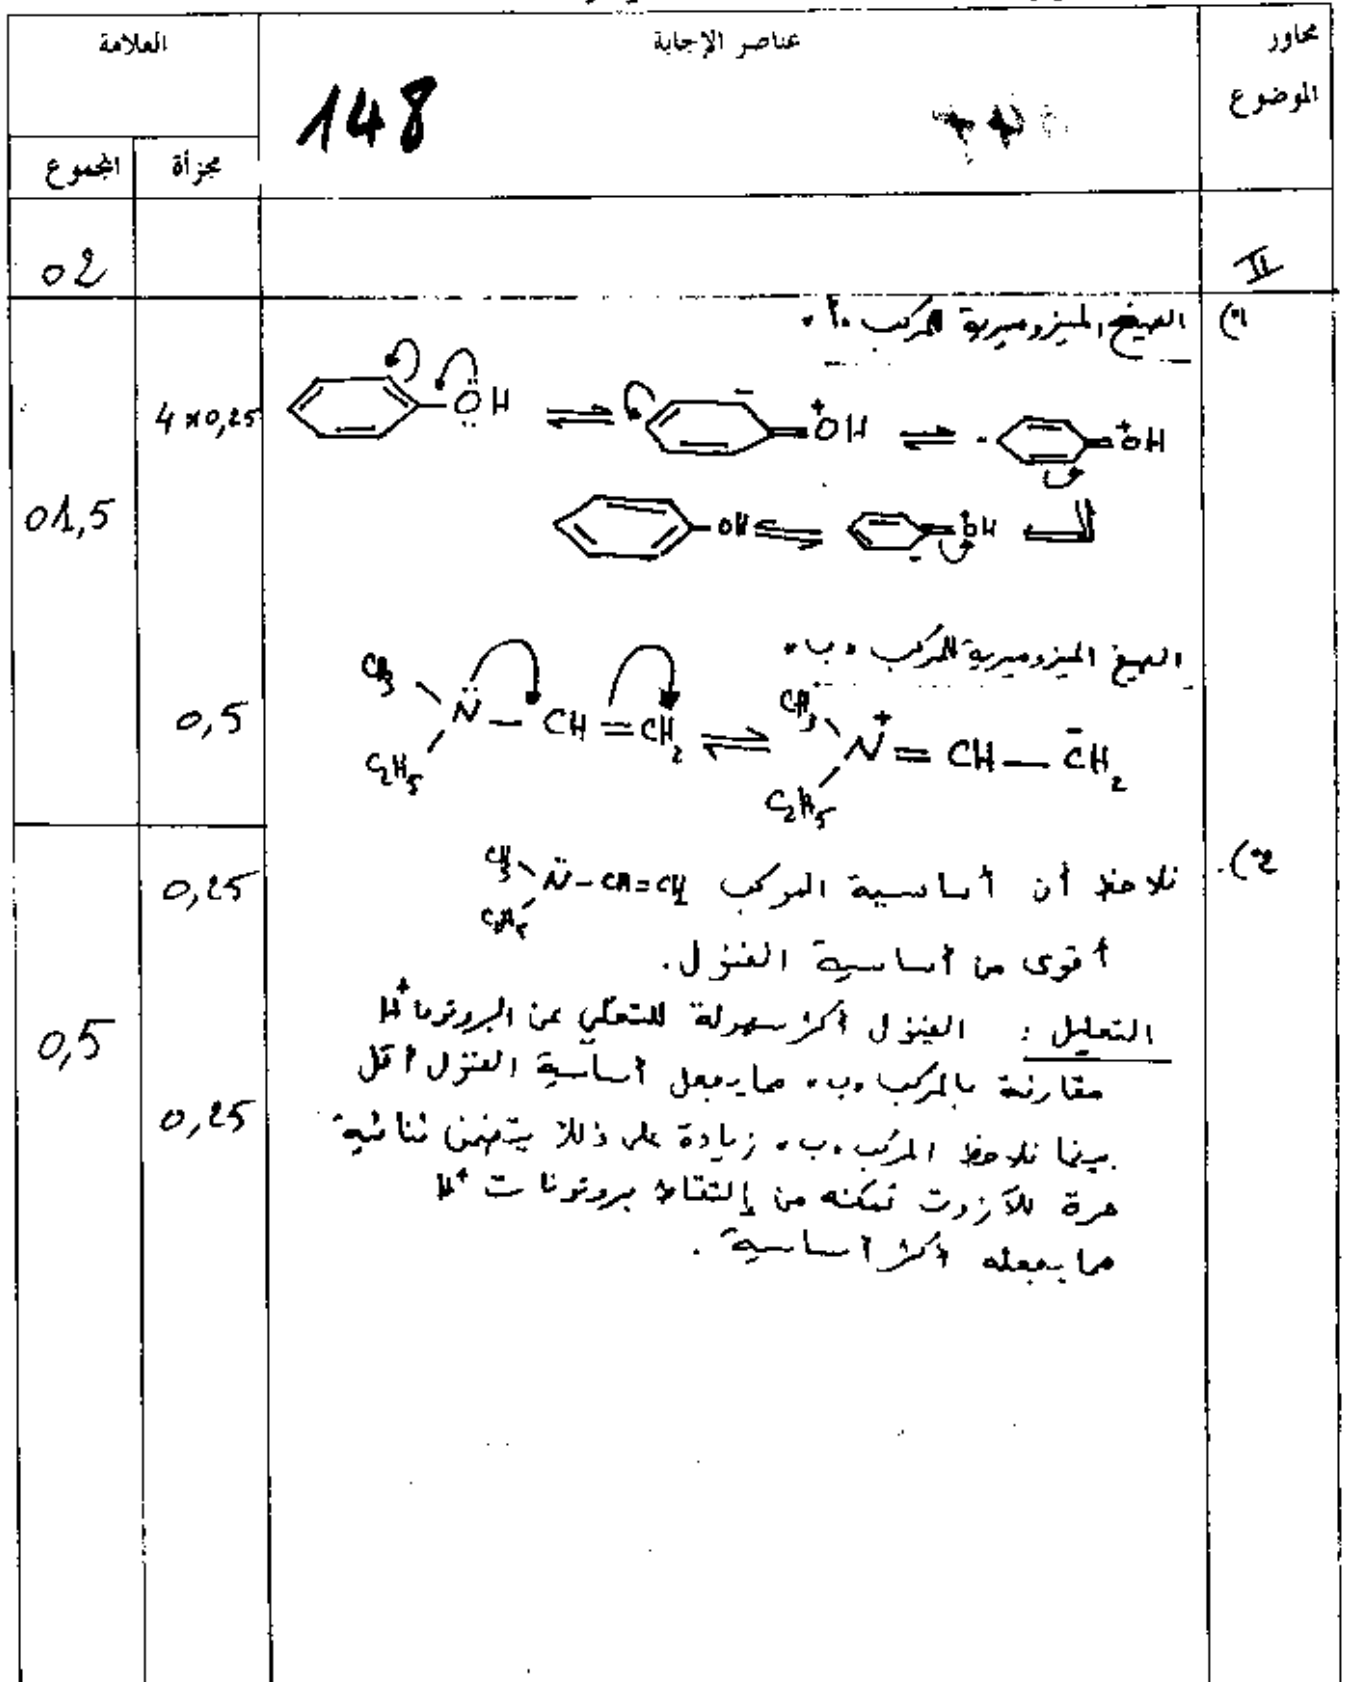 محاور الموضوع
عناصر الإجابة
العلامة
148
مجزأة
المجموع
II
02
1°) الصيغ الميزوميرية للمركب "أ"
ÖH ⇌ +OH ⇌ +OH
OH ⇌ +OH
4 x 0,25
01,5
الصيغ الميزوميرية للمركب "ب"
CH3 C2H5 N̈ — CH = CH2 ⇌ CH3 C2H5 N+ = CH — C̄H2
0,5
2°) نلاحظ أن أساسية المركب CH3 C2H5 N̈ - CH = CH2
أقوى من أساسية الفنول.
0,25
التعليل : الفينول أكثر سهولة للتخلي عن البروتون H+
مقارنة بالمركب "ب" مما يجعل أساسية الفنول أقل
0,5
بينما نلاحظ المركب "ب" زيادة على ذلك يتضمن ثنائية
0,25
حرة للآزوت تمكنه من إلتقاط بروتونات H+
مما يجعله أكثر أساسية.